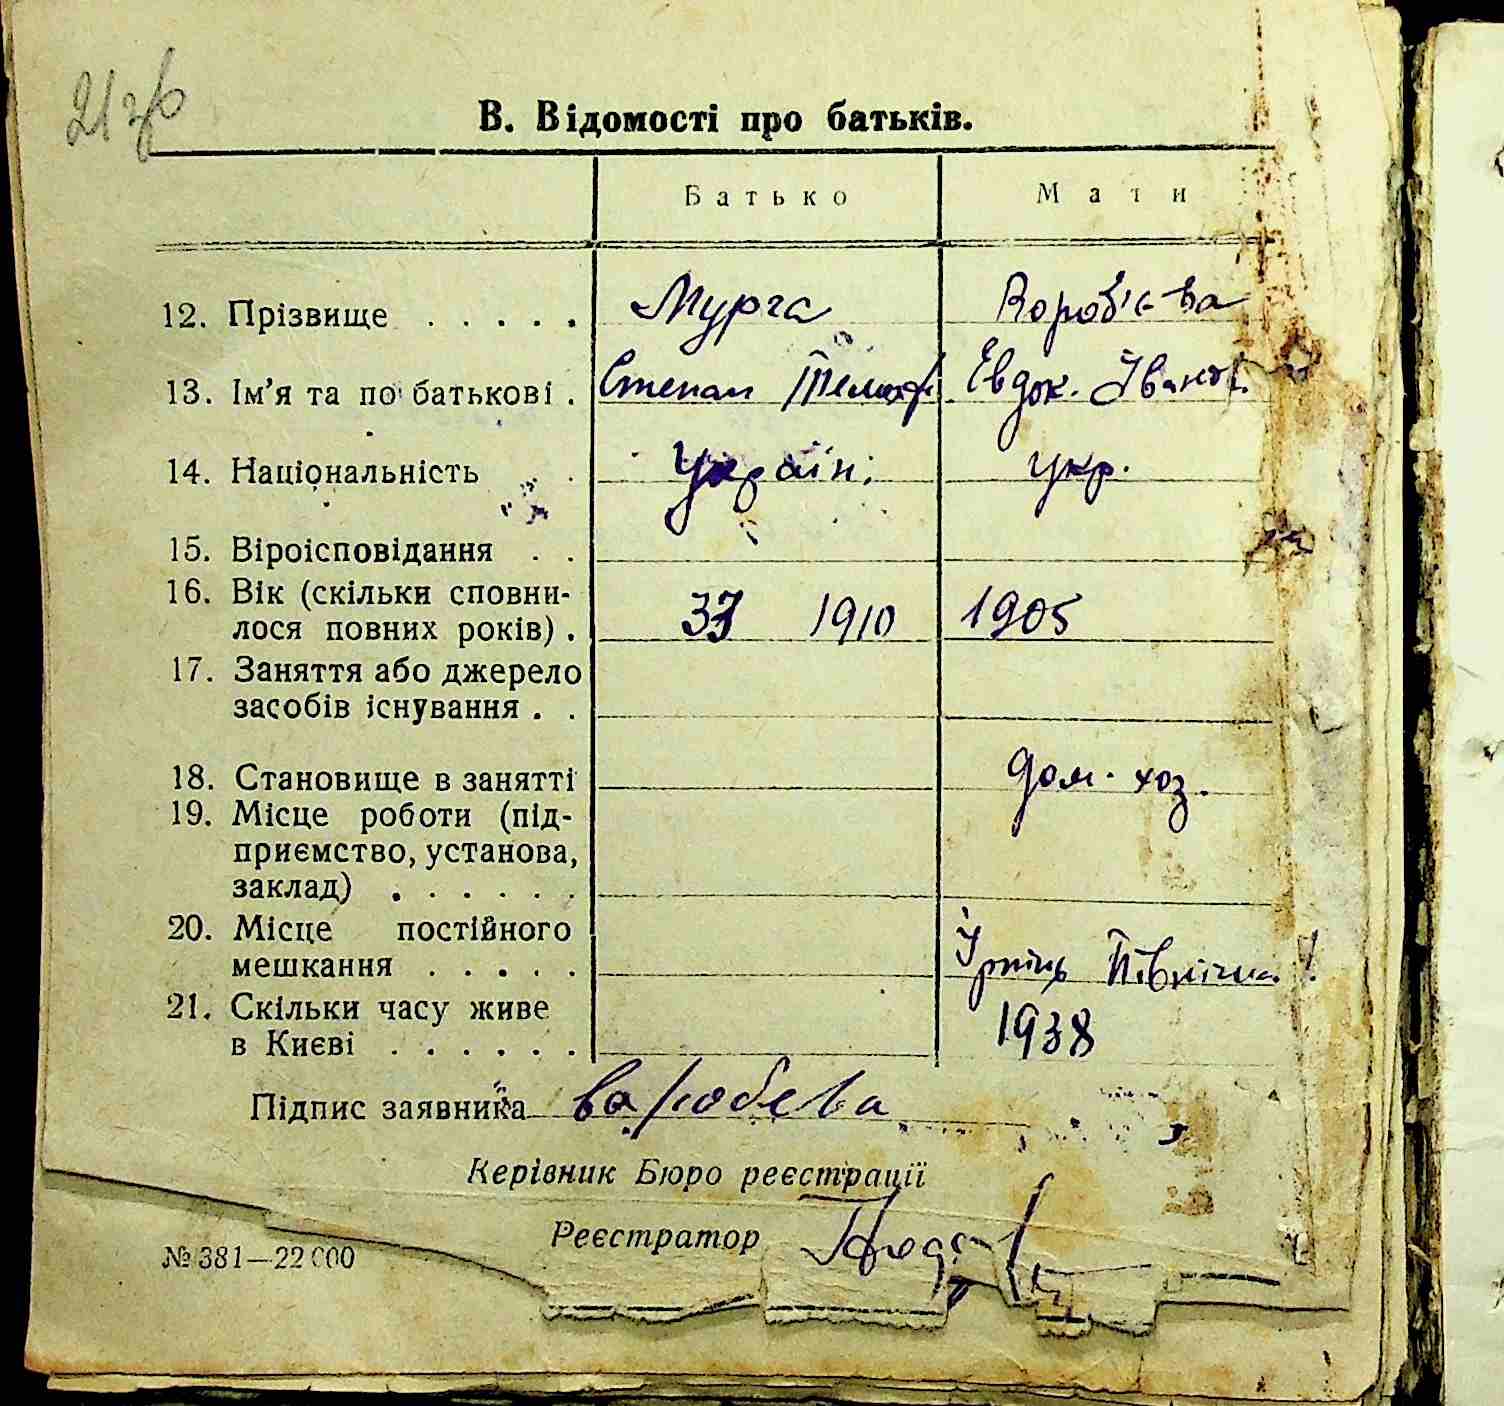 21 зв
В. Відомості про батьків.
Батько Мати
12. Прізвище . . . . . Мурга Вороб'єва
13. Ім'я та по батькові . Степан Тимоф. Євдок. Іванов.
14. Національність . Україн. укр.
15. Віроісповідання . .
16. Вік (скільки сповни-
лося повних років) . 33 1910 1905
17. Заняття або джерело
засобів існування . .
18. Становище в занятті дом. хоз.
19. Місце роботи (під-
приємство, установа,
заклад) . . . . . .
20. Місце постійного
мешкання . . . . . Ірпінь Північна
21. Скільки часу живе
в Києві . . . . . . 1938
Підпис заявника Варобева
Керівник Бюро реєстрації
Реєстратор
№ 381—22 000